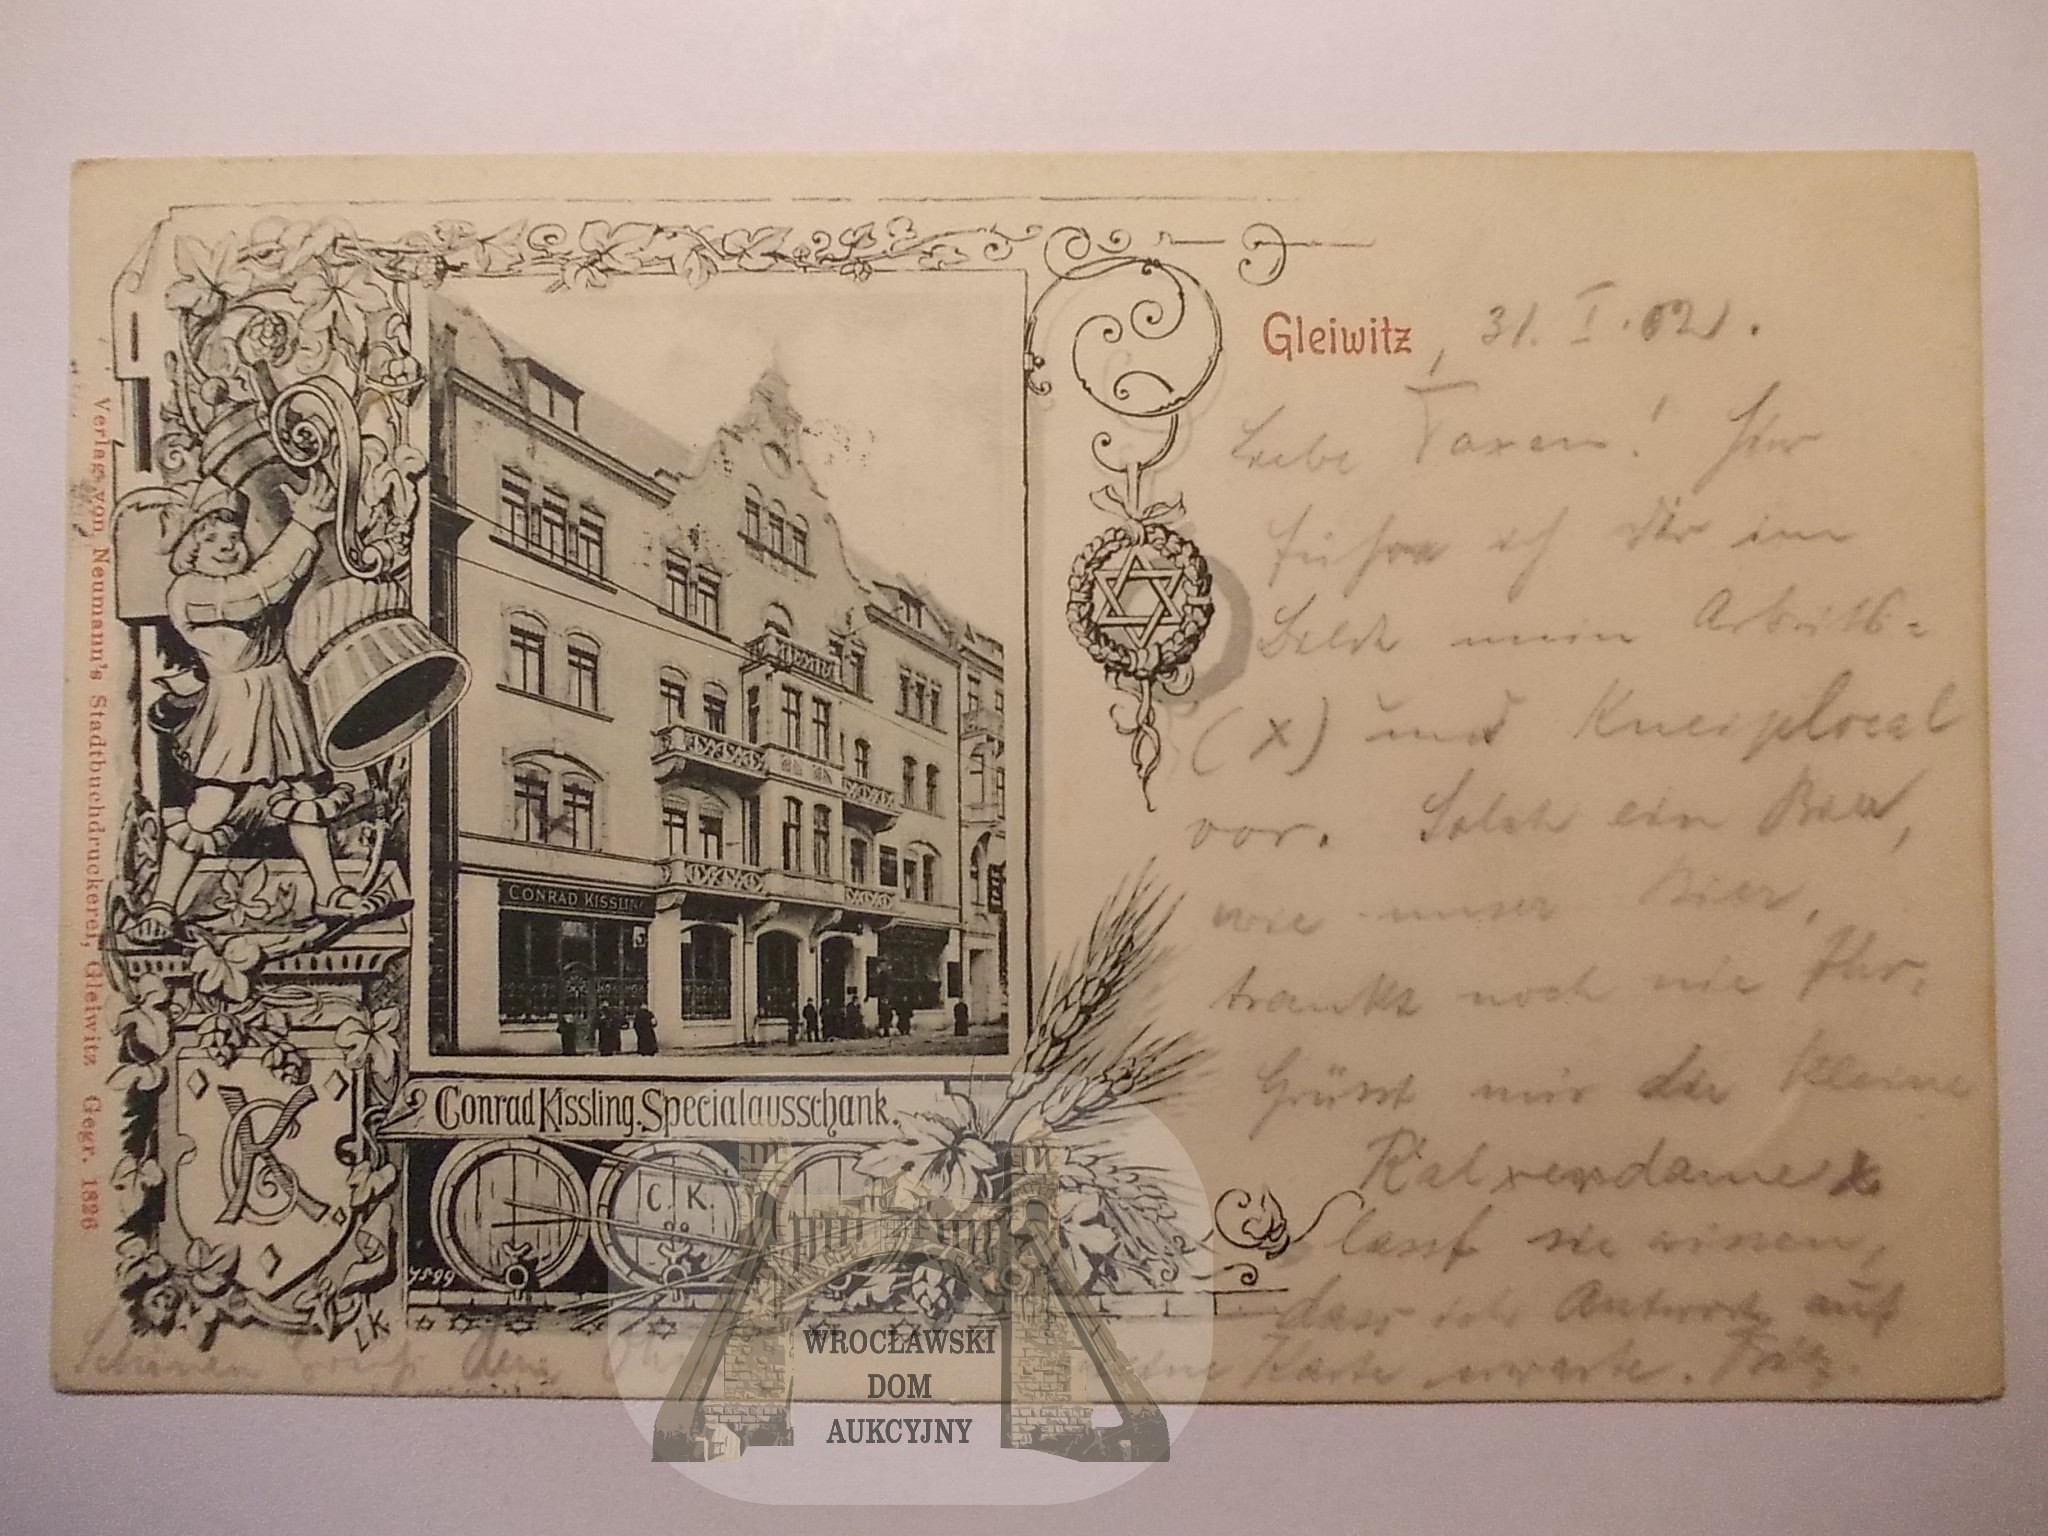 Gleiwitz, 31. I. 02.
Liebe ! Hier
führe ich Dir im
Bilde mein Arbeits-
(x) und Kneiplocal
vor. Solch ein Bier,
wie unser Bier,
trankt noch nie Ihr.
Grüsst mir die kleine
lasst sie wissen,
dass ich Antwort auf
meine Karte erwarte. Fritz.
Schönen Gruss
CONRAD KISSLING
Conrad Kissling. Specialausschank.
C. K.
CK
7599
LK
Verlag von Neumann's Stadtbuchdruckerei, Gleiwitz Gegr. 1826
WROCŁAWSKI
DOM
AUKCYJNY